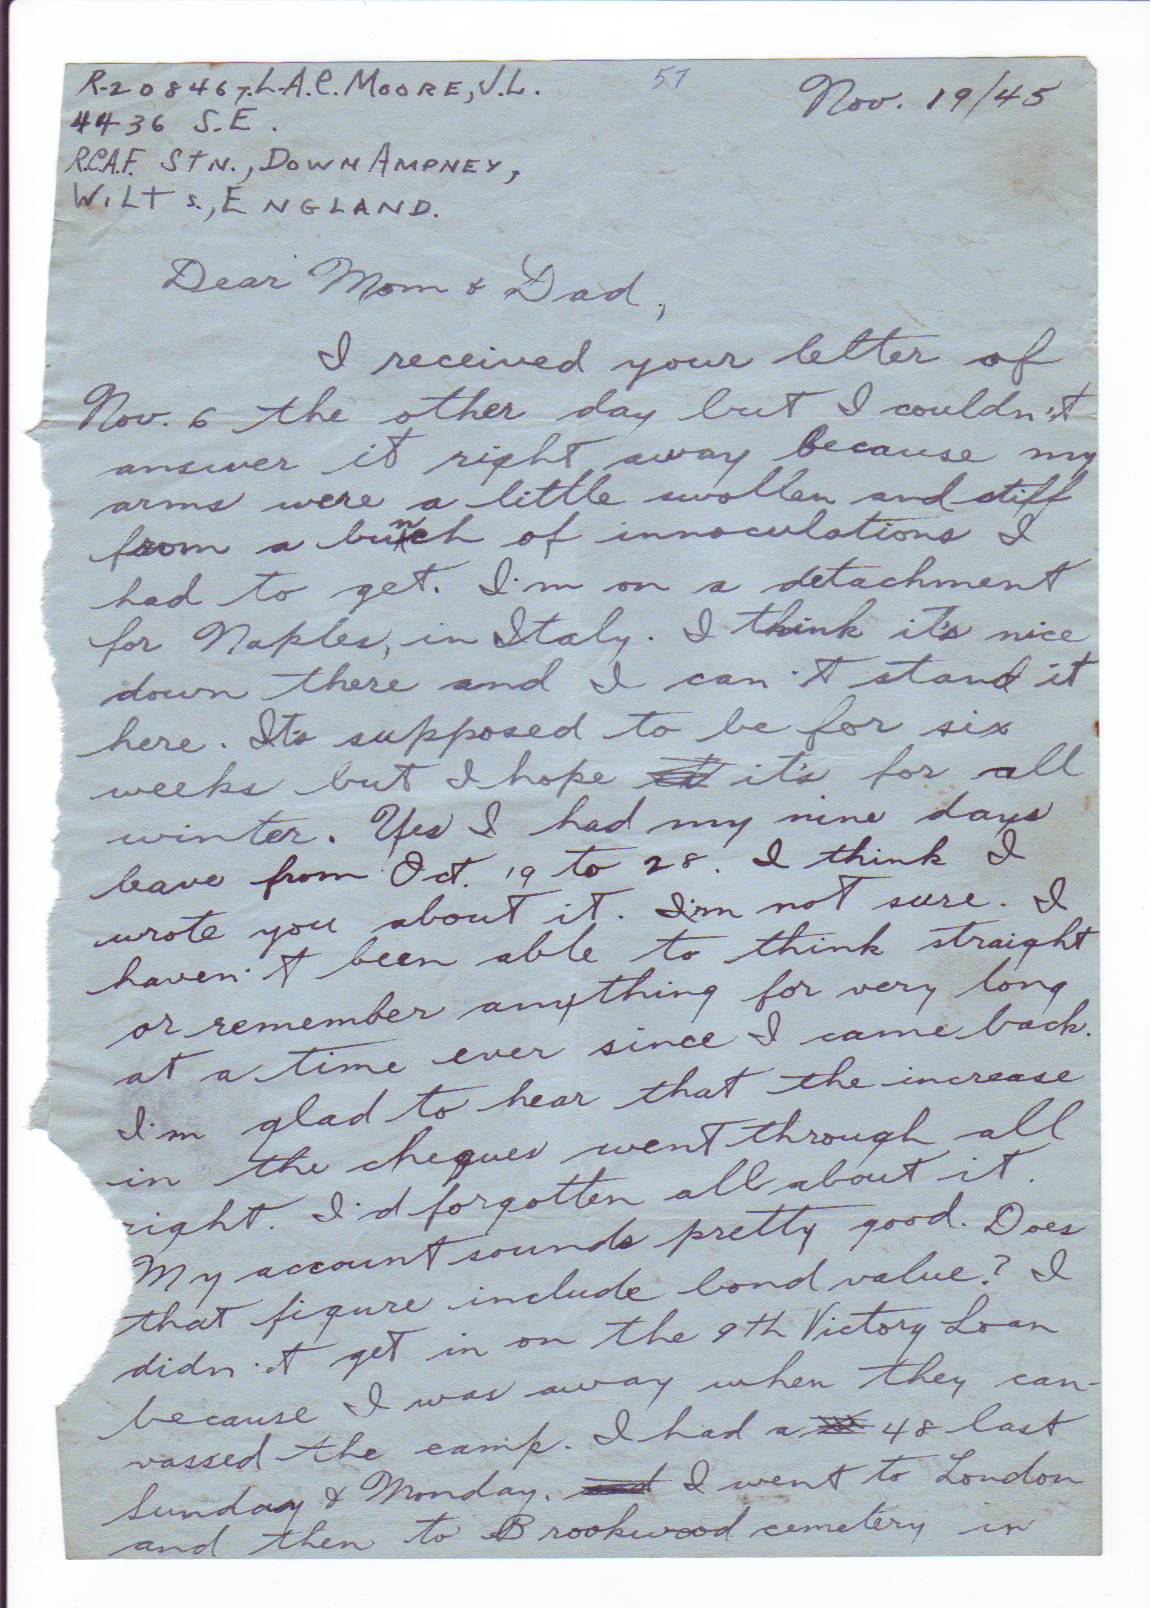 R-208467. L.A.C. MOORE, J.L.
57
Nov. 19/45
4436 S.E.
R.C.A.F. STN., DOWN AMPNEY,
WILTS., ENGLAND.
Dear Mom & Dad,
I received your letter of
Nov. 6 the other day but I couldn't
answer it right away because my
arms were a little swollen and stiff
from a bunch of innoculations I
had to get. I'm on a detachment
for Naples, in Italy. I think it's nice
down there and I can't stand it
here. Its supposed to be for six
weeks but I hope it's for all
winter. Yes I had my nine days
leave from Oct. 19 to 28. I think I
wrote you about it. I'm not sure. I
haven't been able to think straight
or remember anything for very long
at a time ever since I came back.
I'm glad to hear that the increase
in the cheques went through all
right. I'd forgotten all about it.
My account sounds pretty good. Does
that figure include bond value? I
didn't get in on the 9th Victory Loan
because I was away when they can-
vassed the camp. I had a 48 last
Sunday & Monday. I went to London
and then to Brookwood cemetery in